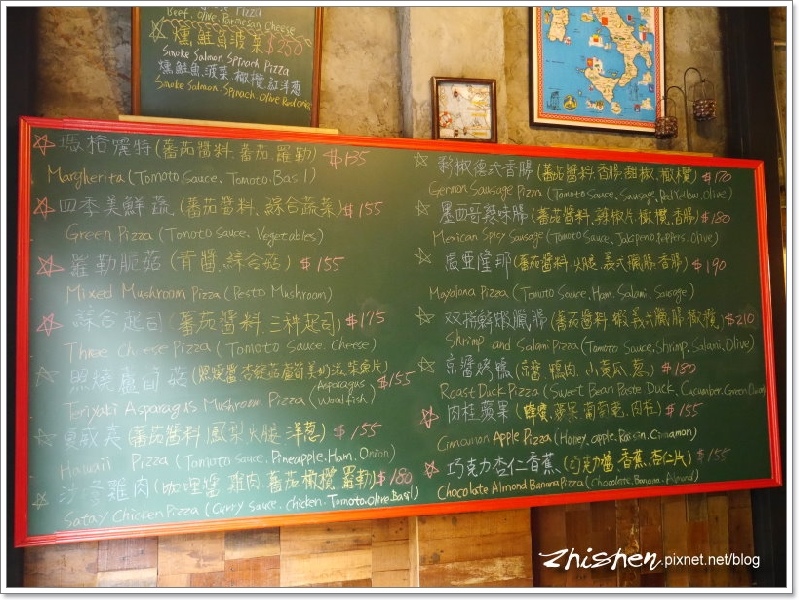 Pizza
Beef, Olive, Parmesan Cheese
燻鮭菠菜 $250
Smoke Salmon Spinach Pizza
燻鮭魚, 菠菜, 橄欖, 紅洋蔥
Smoke Salmon, Spinach, Olive, Red Onion
瑪格麗特 (蕃茄醬料, 蕃茄, 羅勒) $135
Margherita (Tomato Sauce, Tomato, Basil)
四季美鮮蔬 (蕃茄醬料, 綜合蔬菜) $155
Green Pizza (Tomato Sauce, Vegetables)
羅勒脆菇 (青醬, 綜合菇) $155
Mixed Mushroom Pizza (Pesto Mushroom)
綜合起司 (蕃茄醬料, 三種起司) $175
Three Cheese Pizza (Tomato Sauce, Cheese)
照燒蘆筍菇 (照燒醬, 杏鮑菇, 蘆筍, 美奶滋, 柴魚片) $155
Teriyaki Asparagus Mushroom Pizza (Asparagus Woolfish)
夏威夷 (蕃茄醬料, 鳳梨, 火腿, 洋蔥) $155
Hawaii Pizza (Tomato Sauce, Pineapple, Ham, Onion)
沙嗲雞肉 (咖哩醬, 雞肉, 蕃茄, 橄欖, 羅勒) $180
Satay Chicken Pizza (Curry Sauce, Chicken, Tomato, Olive, Basil)
彩椒德式香腸 (蕃茄醬料, 香腸, 甜椒, 橄欖) $170
German Sausage Pizza (Tomato Sauce, Sausage, Red Yellow, Olive)
墨西哥辣味腸 (蕃茄醬料, 辣椒片, 橄欖, 香腸) $180
Mexican Spicy Sausage (Tomato Sauce, Jalapeno Peppers, Olive)
(蕃茄醬料, 火腿, 義式臘腸, 香腸) $190
Mayolona Pizza (Tomato Sauce, Ham, Salami, Sausage)
双拼鮮蝦臘腸 (蕃茄醬料, 蝦, 義式臘腸, 橄欖) $210
Shrimp and Salami Pizza (Tomato Sauce, Shrimp, Salami, Olive)
京醬烤鴨 (京醬, 鴨肉, 小黃瓜, 蔥) $180
Roast Duck Pizza (Sweet Bean Paste Duck, Cucumber, Green Onion)
肉桂蘋果 (蜂蜜, 蘋果, 葡萄乾, 肉桂) $155
Cinnamon Apple Pizza (Honey, apple, Raisin, Cinnamon)
巧克力杏仁香蕉 (巧克力醬, 香蕉, 杏仁片) $155
Chocolate Almond Banana Pizza (Chocolate, Banana, Almond)
Zhishen.pixnet.net/blog